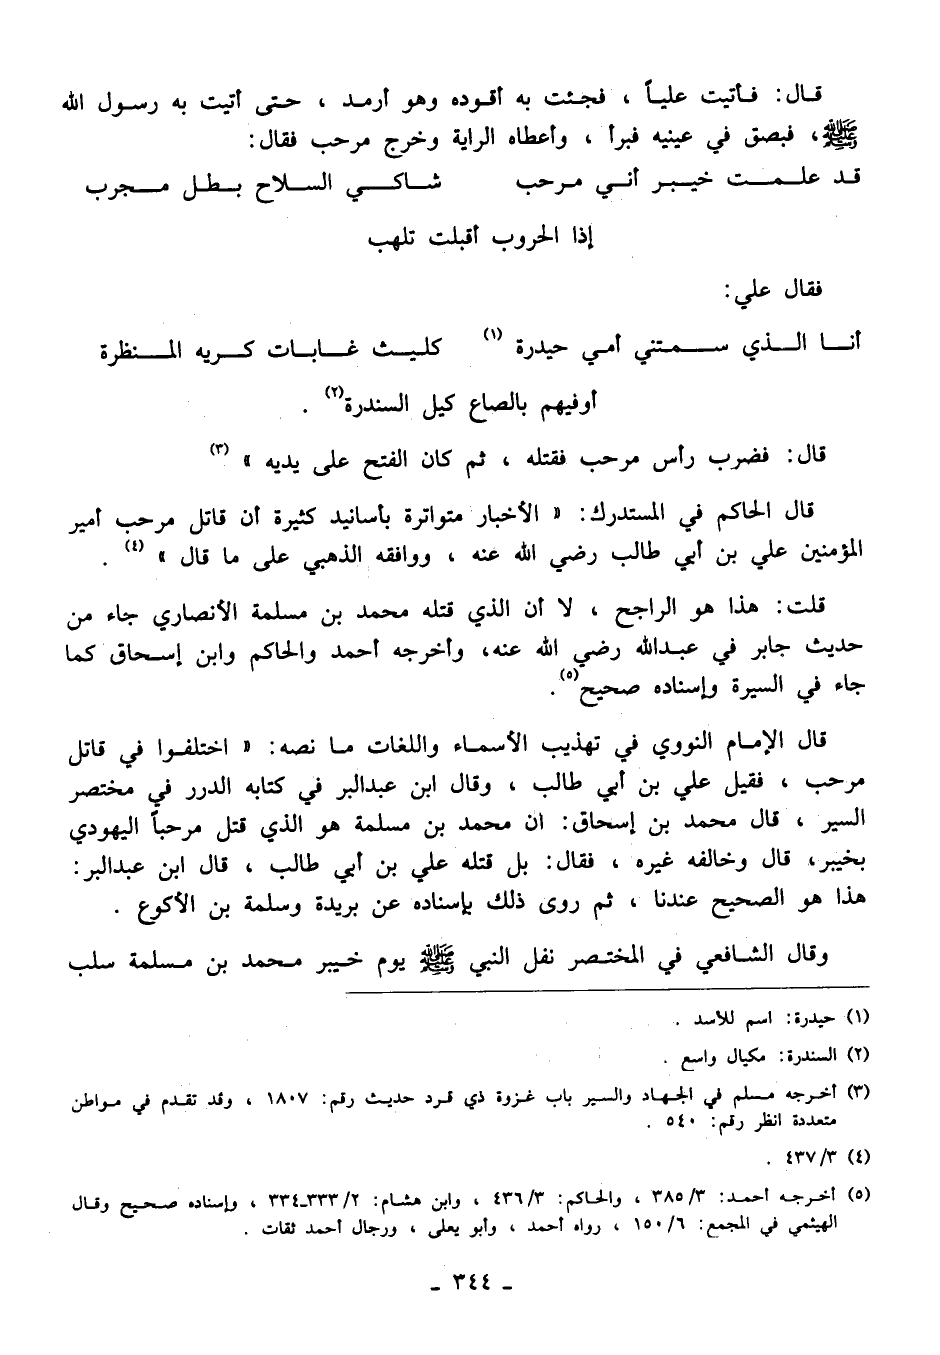 قال: فأتيت علياً ، فجئت به أقوده وهو أرمد ، حتى أتيت به رسول الله
ﷺ، فبصق في عينيه فبرأ ، وأعطاه الراية وخرج مرحب فقال:
قد علمت خيبر أني مرحب شاكي السلاح بطل مجرب
إذا الحروب أقبلت تلهب
فقال علي:
أنا الذي سمتني أمي حيدرة (١) كليث غابات كريه المنظرة
أوفيهم بالصاع كيل السندرة(٢) .
قال: فضرب رأس مرحب فقتله ، ثم كان الفتح على يديه » (٣)
قال الحاكم في المستدرك: « الأخبار متواترة بأسانيد كثيرة أن قاتل مرحب أمير
المؤمنين علي بن أبي طالب رضي الله عنه ، ووافقه الذهبي على ما قال » (٤) .
قلت: هذا هو الراجح ، لا أن الذي قتله محمد بن مسلمة الأنصاري جاء من
حديث جابر في عبدالله رضي الله عنه، وأخرجه أحمد والحاكم وابن إسحاق كما
جاء في السيرة وإسناده صحيح(٥).
قال الإمام النووي في تهذيب الأسماء واللغات ما نصه: « اختلفوا في قاتل
مرحب ، فقيل علي بن أبي طالب ، وقال ابن عبدالبر في كتابه الدرر في مختصر
السير ، قال محمد بن إسحاق: ان محمد بن مسلمة هو الذي قتل مرحباً اليهودي
بخيبر، قال وخالفه غيره ، فقال: بل قتله علي بن أبي طالب ، قال ابن عبدالبر:
هذا هو الصحيح عندنا ، ثم روى ذلك بإسناده عن بريدة وسلمة بن الأكوع .
وقال الشافعي في المختصر نفل النبي ﷺ يوم خيبر محمد بن مسلمة سلب
(١) حيدرة: اسم للأسد .
(٢) السندرة: مكيال واسع .
(٣) أخرجه مسلم في الجهاد والسير باب غزوة ذي قرد حديث رقم: ١٨٠٧ ، وقد تقدم في مواطن
متعددة انظر رقم: ٥٤٠ .
(٤) ٤٣٧/٣ .
(٥) أخرجه أحمد: ٣٨٥/٣ ، والحاكم: ٤٣٦/٣ ، وابن هشام: ٣٣٣/٢ـ٣٣٤ ، وإسناده صحيح وقال
الهيثمي في المجمع: ١٥٠/٦ ، رواه أحمد ، وأبو يعلى ، ورجال أحمد ثقات .
ـ ٣٤٤ ـ